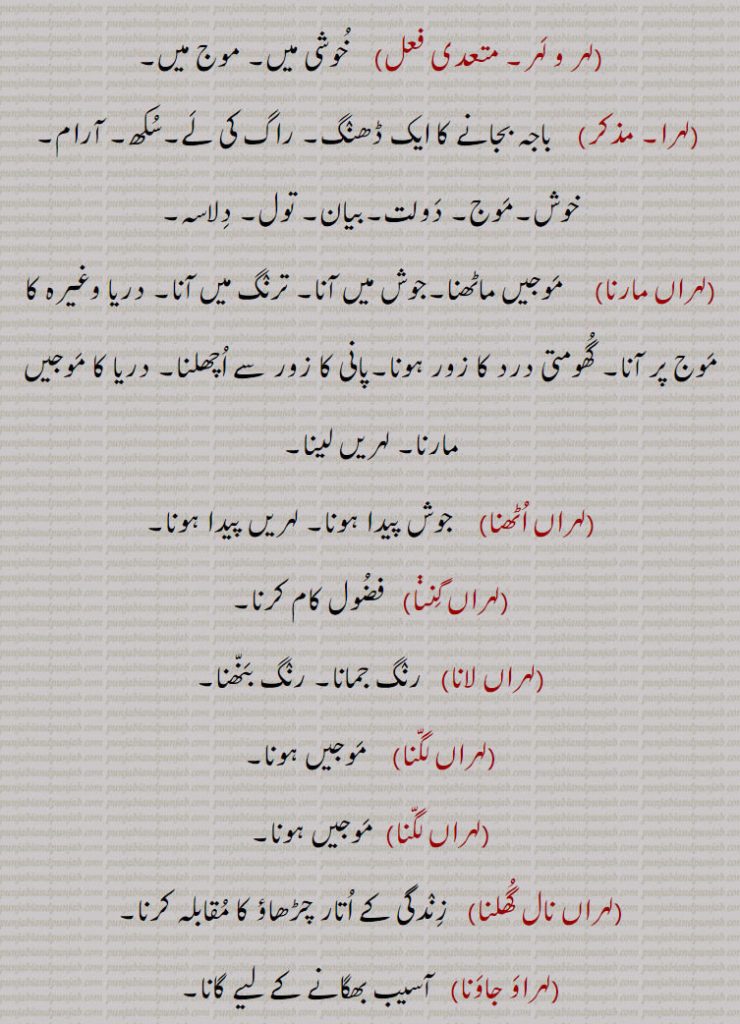 (لہر و لَہر۔ متعدی فعل) خُوشی میں۔ موج میں۔
(لہرا۔ مذکر) باجہ بجانے کا ایک ڈھنگ۔ راگ کی لَے۔سُکھ۔ آرام۔
خوش۔مَوج۔ دَولت۔بیان۔ تول۔ دِلاسہ۔
(لہراں مارنا) مَوجیں ماٹھنا۔جوش میں آنا۔ ترنگ میں آنا۔ دریا وغیرہ کا
مَوج پر آنا۔ گُھومتی درد کا زور ہونا۔پانی کا زور سے اُچھلنا۔ دریا کا مَوجیں
مارنا۔ لہریں لینا۔
(لہراں اُٹھنا) جوش پیدا ہونا۔ لہریں پیدا ہونا۔
(لہراں گِننا) فضُول کام کرنا۔
(لہراں لانا) رنگ جمانا۔ رنگ بَنّھنا۔
(لہراں لگّنا) مَوجیں ہونا۔
(لہراں لگّنا) مَوجیں ہونا۔
(لہراں نال گُھلنا) زِندگی کے اُتار چڑھاؤ کا مُقابلہ کرنا۔
(لہراوَ جاوَنا) آسیب بھگانے کے لیے گانا۔